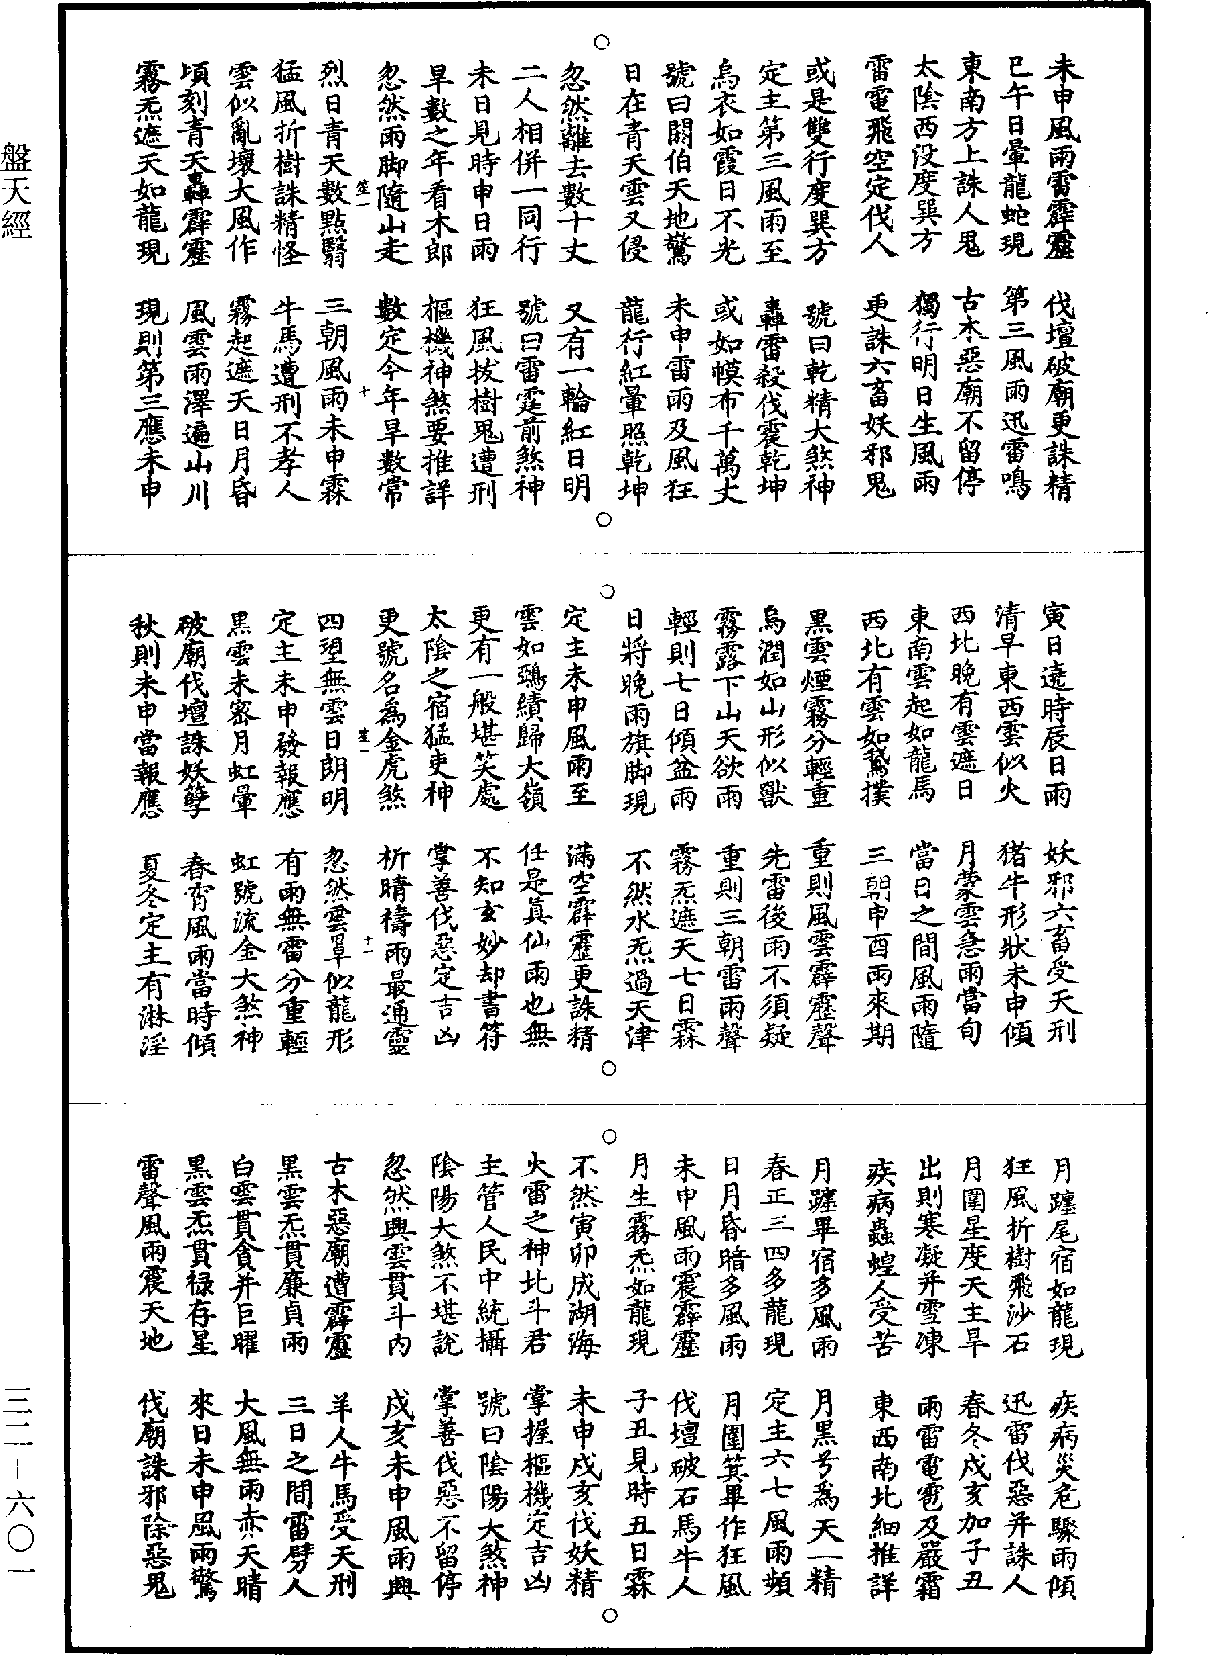 盤天經
未申風雨雷霹靂　伐壇破廟更誅精
巳午日暈龍蛇現　第三風雨迅雷鳴
東南方上誅人鬼　古木惡廟不留停
太陰西没度巽方　獨行明日生風雨
雷電飛空定伐人　更誅六畜妖邪鬼
或是雙行度巽方　號曰乾精大煞神
定主第三風雨至　轟雷殺伐震乾坤
烏衣如霞日不光　或如幙布千萬丈
號曰閼伯天地驚　未申雷雨及風狂
日在青天雲又侵　龍行紅暈照乾坤
忽然離去數十丈　又有一輪紅日明
二人相併一同行　號曰雷霆前煞神
未日見時申日雨　狂風拔樹鬼遭刑
旱數之年看木郎　樞機神煞要推詳
忽然雨脚隨山走　數定今年旱數常
笙一　十
烈日青天數點翳　三朝風雨未申霖
猛風折樹誅精怪　牛馬遭刑不孝人
雲似亂壞大風作　霧起遮天日月昏
頃刻青天轟霹靂　風雲雨澤遍山川
霧炁遮天如龍現　現則第三應未申
寅日遶時辰日雨　妖邪六畜受天刑
清早東西雲似火　猪牛形狀未申傾
西北晚有雲遮日　月蒙雲急雨當旬
東南雲起如龍馬　當日之間風雨隨
西北有雲如鵞撲　三朝申酉雨來期
黑雲煙霧分輕重　重則風雲霹靂聲
烏潤如山形似獸　先雷後雨不須疑
霧露下山天欲雨　重則三朝雷雨聲
輕則七日傾盆雨　霧炁遮天七日霖
日將晚雨旗脚現　不然水炁過天津
定主未申風雨至　滿空霹靂更誅精
雲如鵶績歸大嶺　任是眞仙雨也無
更有一般堪笑處　不知玄妙却書符
太陰之宿猛吏神　掌善伐惡定吉凶
更號名爲金虎煞　祈晴禱雨最通靈
笙一　十一
四望無雲日朗明　忽然雲罩似龍形
定主未申發報應　有雨無雷分重輕
黑雲未密月虹暈　虹號流金大煞神
破廟伐壇誅妖孽　春宵風雨當時傾
秋則未申當報應　夏冬定主有淋淫
月躔尾宿如龍現　疾病災危驟雨傾
狂風折樹飛沙石　迅雷伐惡并誅人
月圍星度天主旱　春冬戌亥加子丑
出則寒凝并雪凍　雨雷電雹及嚴霜
疾病蟲蝗人受苦　東西南北細推詳
月躔畢宿多風雨　月黑号爲天一精
春正三四多龍現　定主六七風雨頻
日月昏暗多風雨　月圍箕畢作狂風
未申風雨震霹靂　伐壇破石馬牛人
月生霧炁如龍現　子丑見時丑日霖
不然寅卯成湖海　未申戌亥伐妖精
火雷之神北斗君　掌握樞機定吉凶
主管人民中統攝　號曰陰陽大煞神
陰陽大煞不堪說　掌善伐惡不留停
忽然興雲貫斗内　戌亥未申風雨興
古木惡廟遭霹靂　羊人牛馬受天刑
黑雲炁貫廉貞雨　三日之間雷劈人
白雲貫貪并巨曜　大風無雨赤天晴
黑雲炁貫禄存星　來日未申風雨驚
雷聲風雨震天地　伐廟誅邪除惡鬼
三二－六〇一